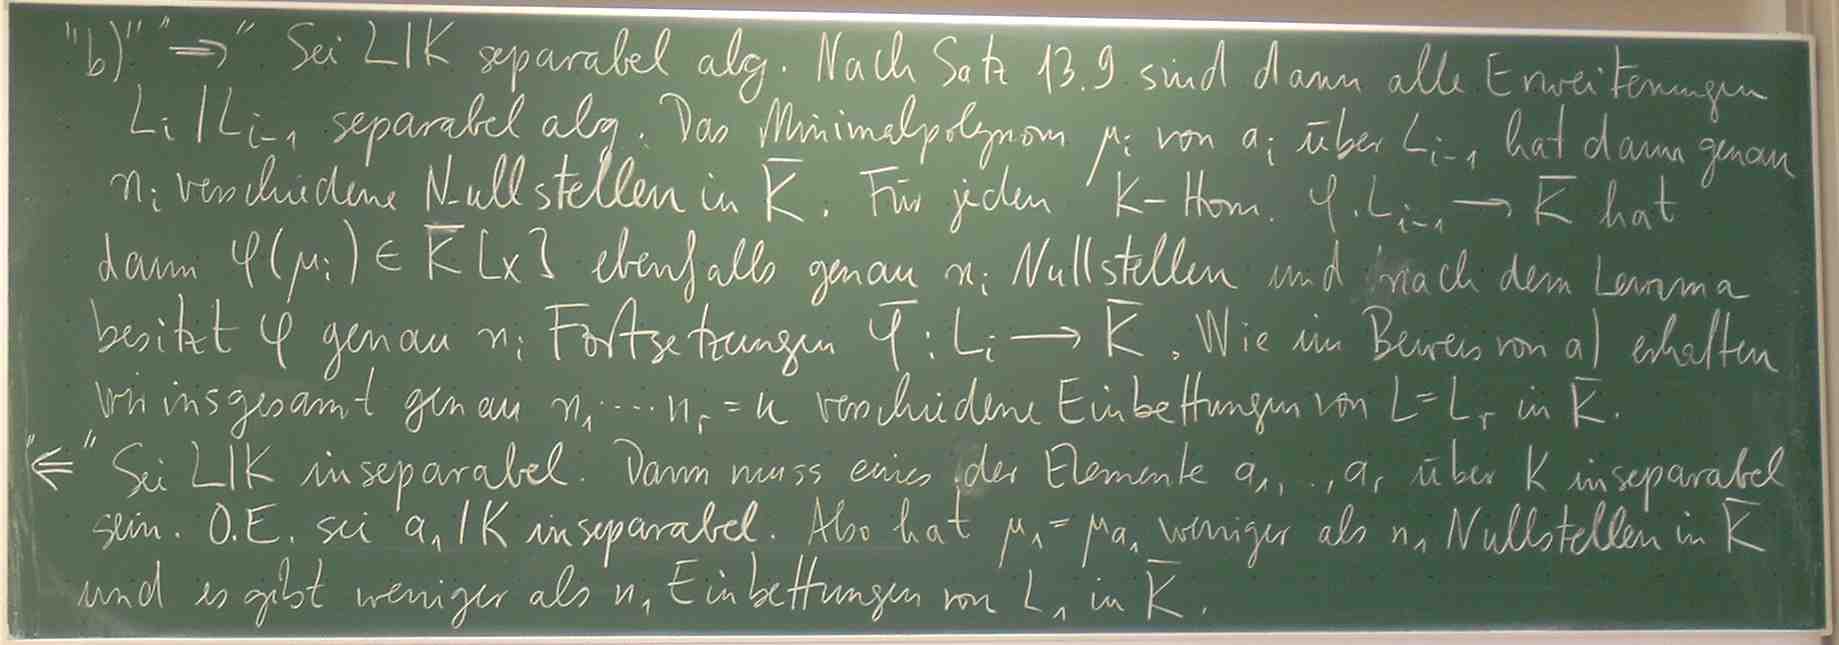 "b)" "⇒" Sei L|K separabel alg. Nach Satz 13.9 sind dann alle Erweiterungen
L_i / L_{i-1} separabel alg. Das Minimalpolynom μ_i von a_i über L_{i-1} hat dann genau
n_i verschiedene Nullstellen in K̄. Für jeden K-Hom. φ: L_{i-1} → K̄ hat
dann φ(μ_i) ∈ K̄[X] ebenfalls genau n_i Nullstellen und nach dem Lemma
besitzt φ genau n_i Fortsetzungen φ̄: L_i → K̄. Wie im Beweis von a) erhalten
wir insgesamt genau n_1 ⋯ n_r = n verschiedene Einbettungen von L = L_r in K̄.
"⇐" Sei L|K inseparabel. Dann muss eines der Elemente a_1, .., a_r über K inseparabel
sein. O.E. sei a_1 / K inseparabel. Also hat μ_1 = μ_{a_1} weniger als n_1 Nullstellen in K̄
und es gibt weniger als n_1 Einbettungen von L_1 in K̄.